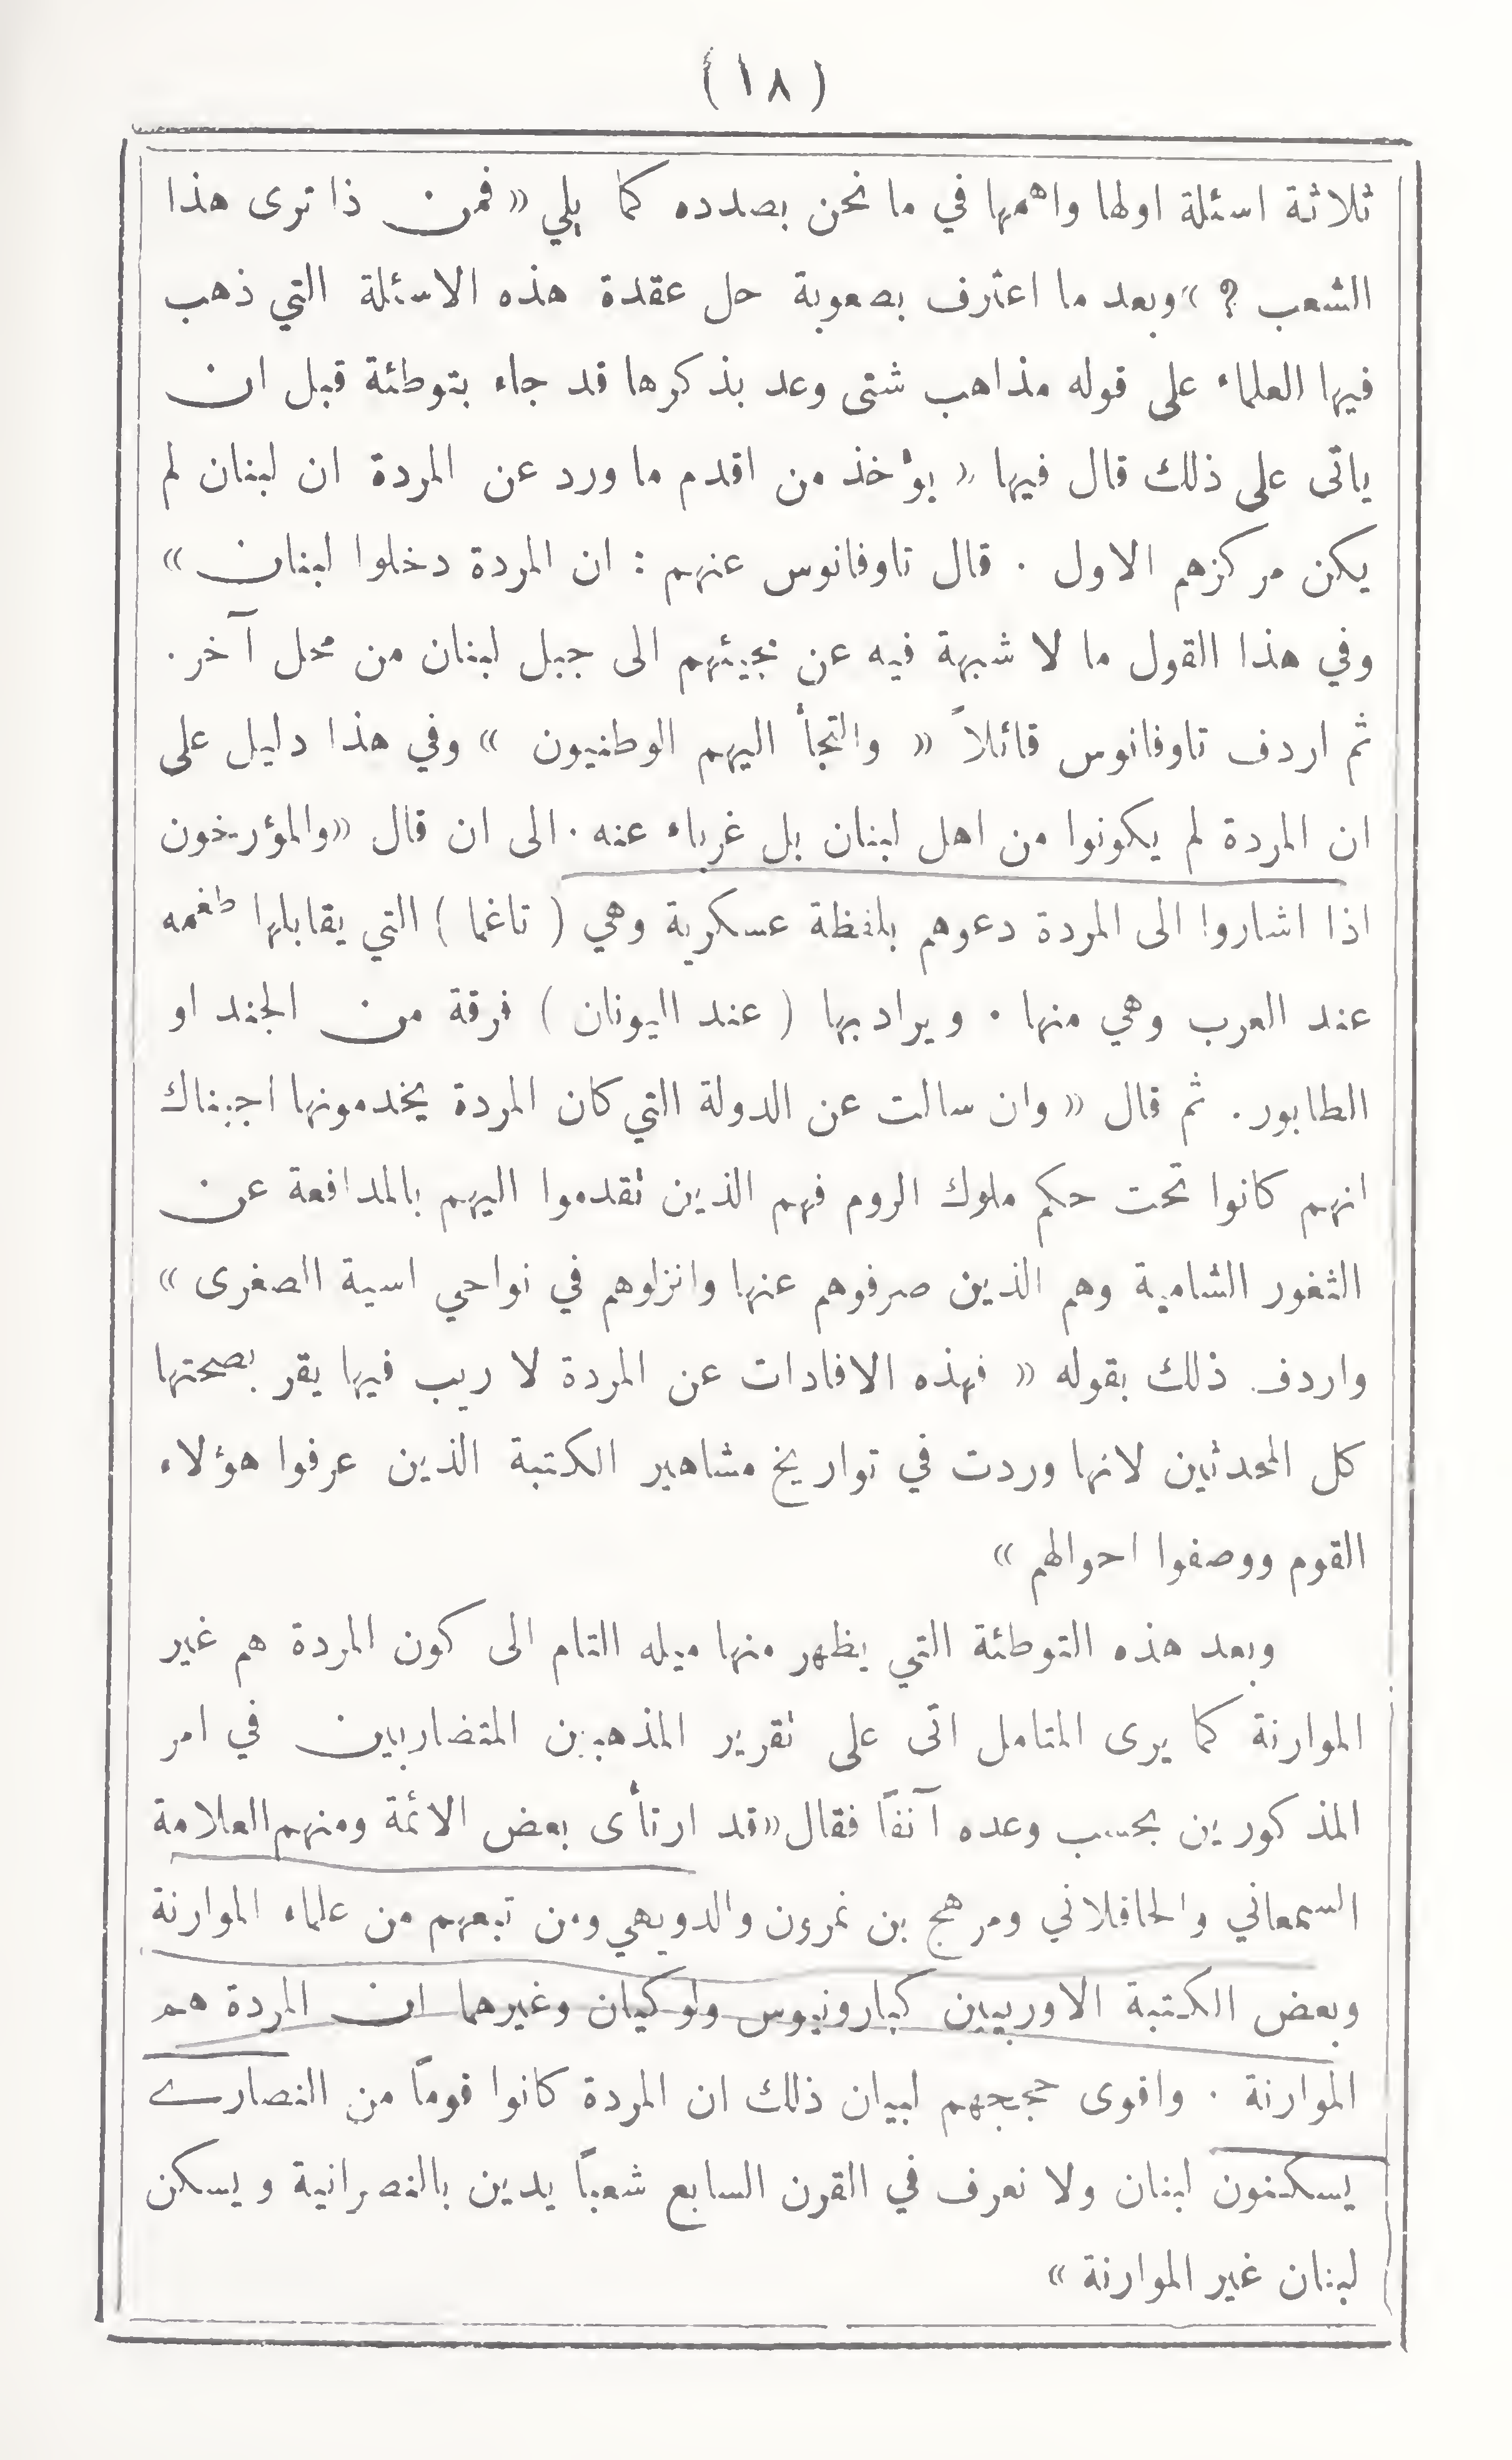 (١٨)
ثلاثة اسئلة اولها واهمها في ما نحن بصدده كما يلي «فمن ذا ترى هذا
الشعب ؟ »وبعد ما اعترف بصعوبة حل عقدة هذه الاسئلة التي ذهب
فيها العلماء على قوله مذاهب شتى وعد بذكرها قد جاء بتوطئة قبل ان
ياتى على ذلك قال فيها « يؤخذ من اقدم ما ورد عن المردة ان لبنان لم
يكن مركزهم الاول . قال تاوفانوس عنهم : ان المردة دخلوا لبنان »
وفي هذا القول ما لا شبهة فيه عن مجيئهم الى جبل لبنان من محل آخر .
ثم اردف تاوفانوس قائلاً « والتجأ اليهم الوطنيون » وفي هذا دليل على
ان المردة لم يكونوا من اهل لبنان بل غرباء عنه . الى ان قال «والمؤرخون
اذا اشاروا الى المردة دعوهم بلفظة عسكرية وهي ( تاغما ) التي يقابلها طغمه
عند العرب وهي منها . ويراد بها ( عند اليونان ) فرقة من الجند او
الطابور . ثم قال « وان سالت عن الدولة التي كان المردة يخدمونها اجبناك
انهم كانوا تحت حكم ملوك الروم فهم الذين تقدموا اليهم بالمدافعة عن
الثغور الشامية وهم الذين صرفوهم عنها وانزلوهم في نواحي اسية الصغرى »
واردف ذلك بقوله « فهذه الافادات عن المردة لا ريب فيها يقر بصحتها
كل المحدثين لانها وردت في تواريخ مشاهير الكتبة الذين عرفوا هؤلاء
القوم ووصفوا احوالهم »
وبعد هذه التوطئة التي يظهر منها ميله التام الى كون المردة هم غير
الموارنة كما يرى المتامل اتى على تقرير المذهبين المتضاربين في امر
المذكورين بحسب وعده آنفاً فقال«قد ارتأى بعض الائمة ومنهم العلامة
السمعاني والحاقلاني ومرهج بن نمرون والدويهي ومن تبعهم من علماء الموارنة
وبعض الكتبة الاوربيين كبارونيوس ولوكيان وغيرهما ان المردة هم
الموارنة . واقوى حججهم لبيان ذلك ان المردة كانوا قوماً من النصارے
يسكنون لبنان ولا نعرف في القرن السابع شعباً يدين بالنصرانية ويسكن
لبنان غير الموارنة »